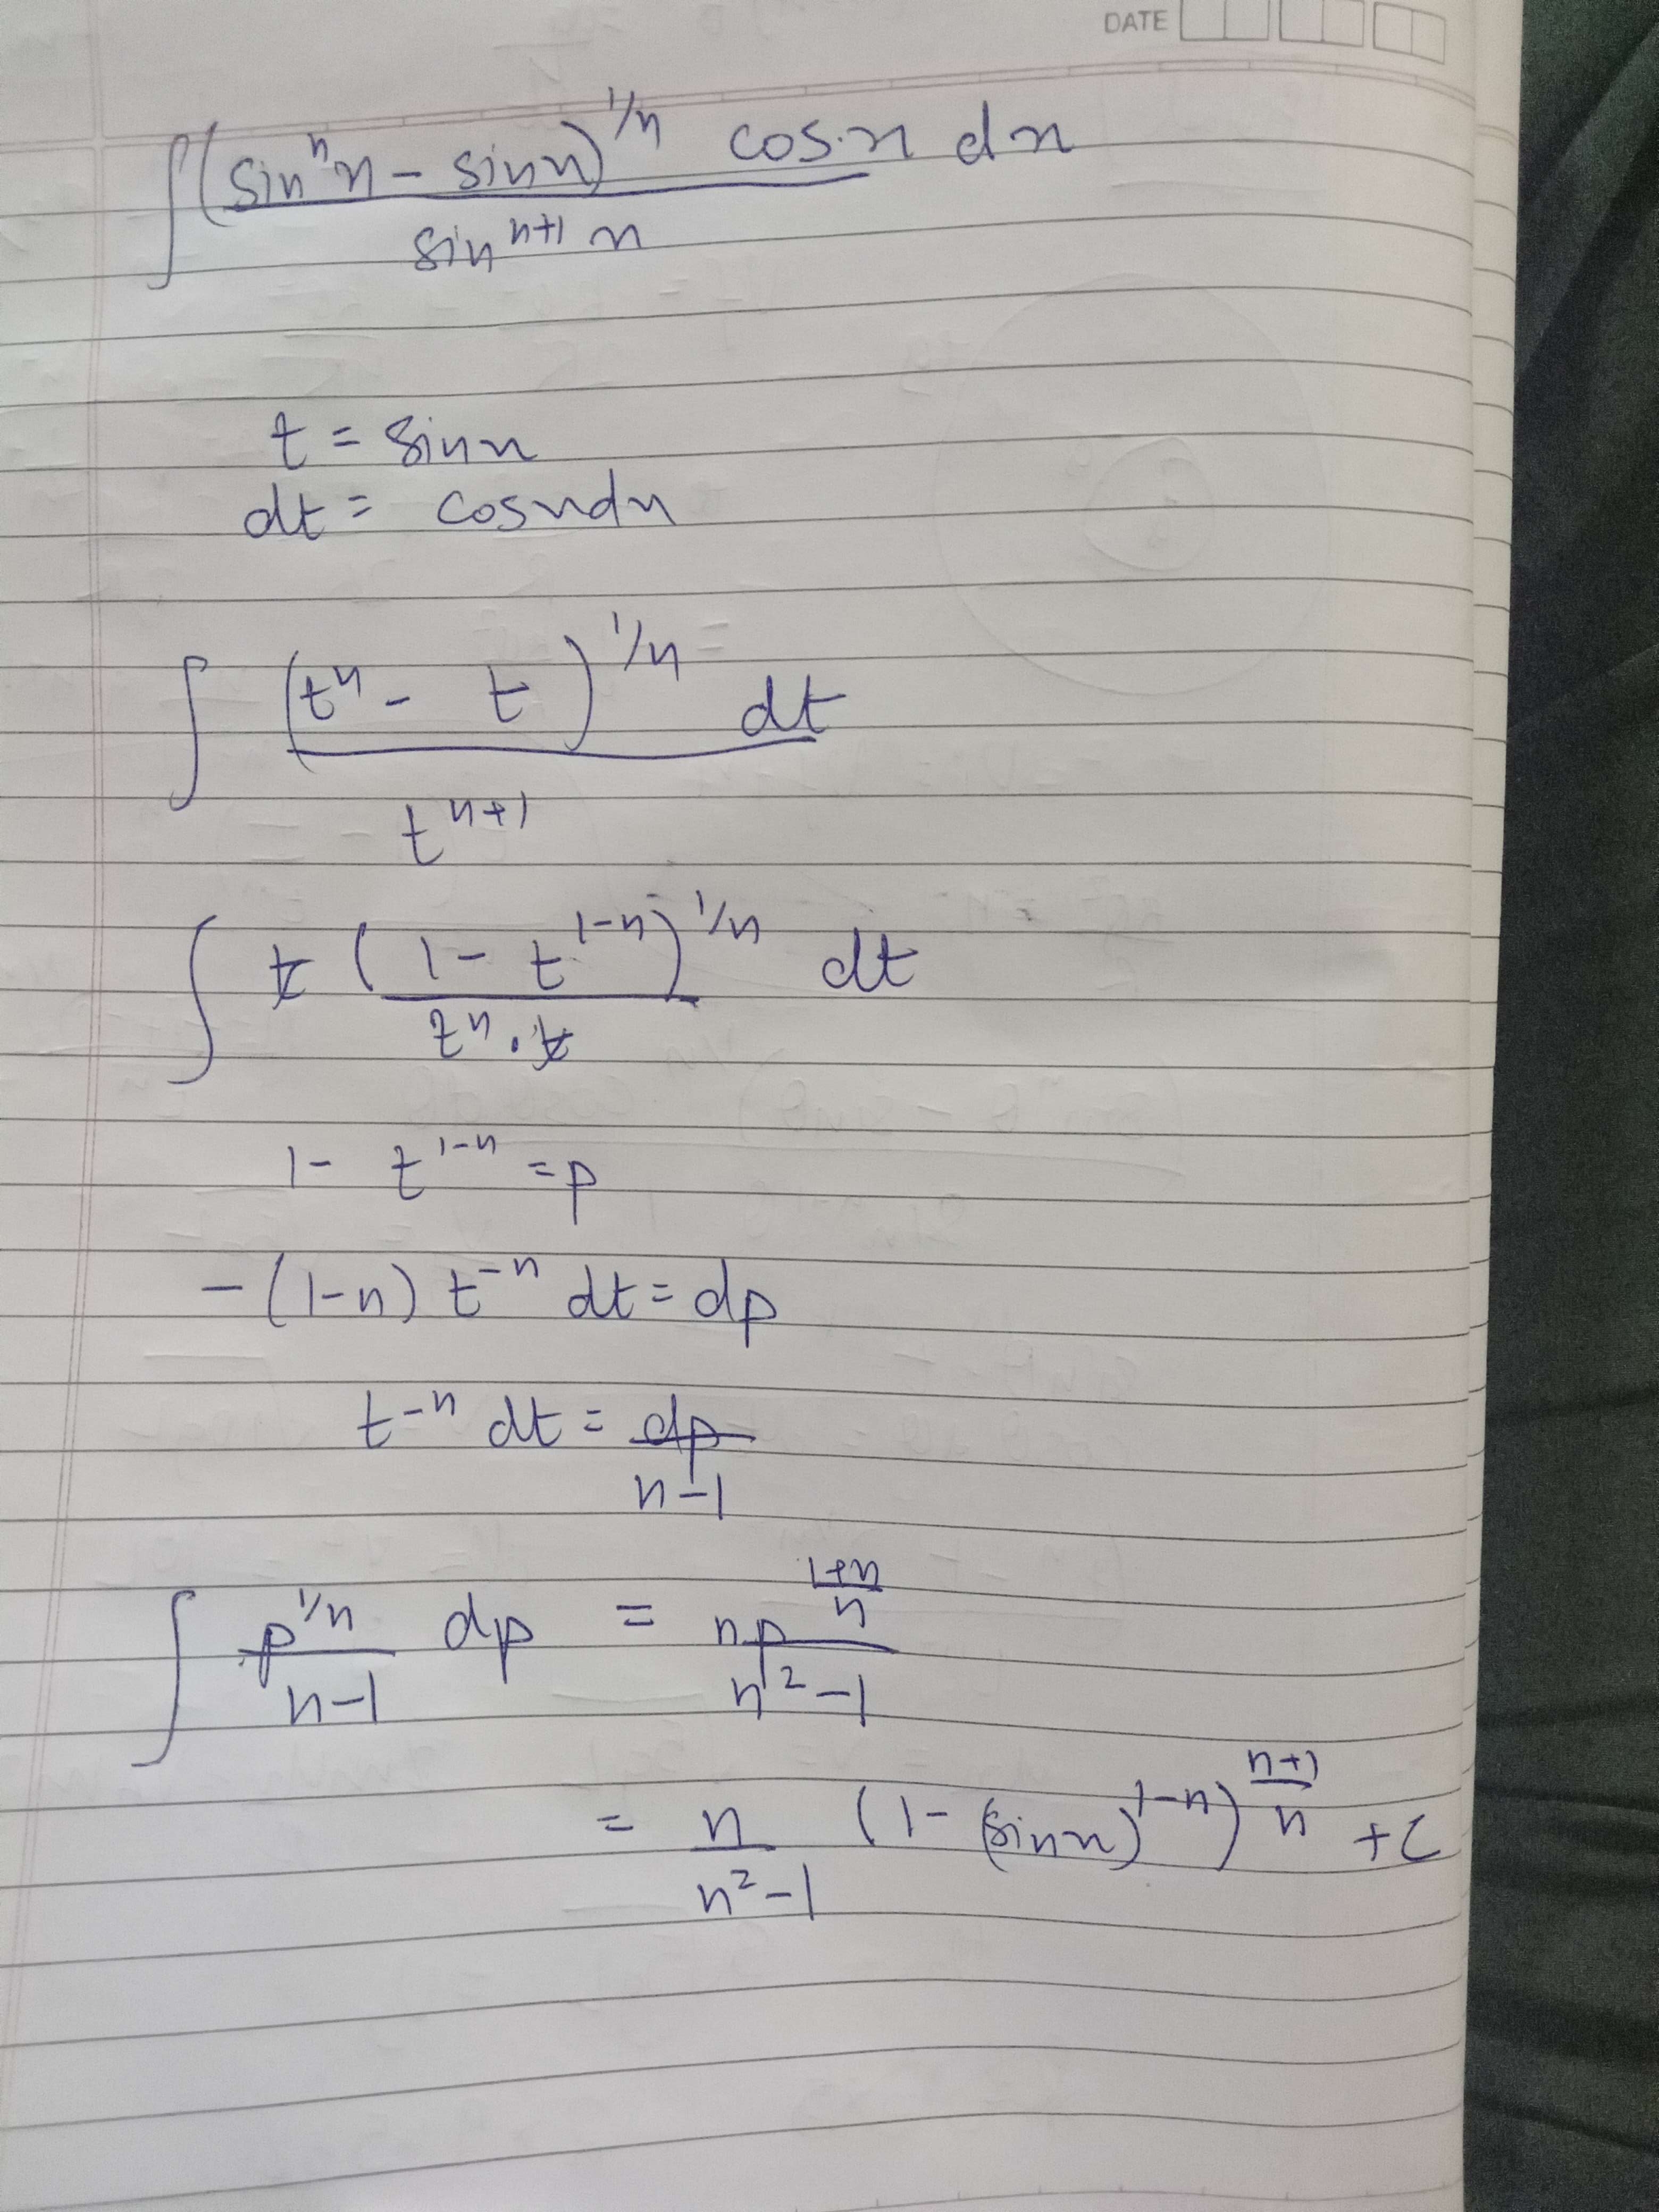 DATE
∫ (sinⁿx - sinx)^(1/n) cosx dx / sin^(n+1) x
t = sinx
dt = cosxdx
∫ (tⁿ - t)^(1/n) dt / t^(n+1)
∫ t (1 - t^(1-n))^(1/n) dt / tⁿ . t
1 - t^(1-n) = p
-(1-n) t^(-n) dt = dp
t^(-n) dt = dp / n-1
∫ p^(1/n) / n-1 dp = n p^((1+n)/n) / n²-1
= n / n²-1 (1 - (sinx)^(1-n))^((n+1)/n) + C